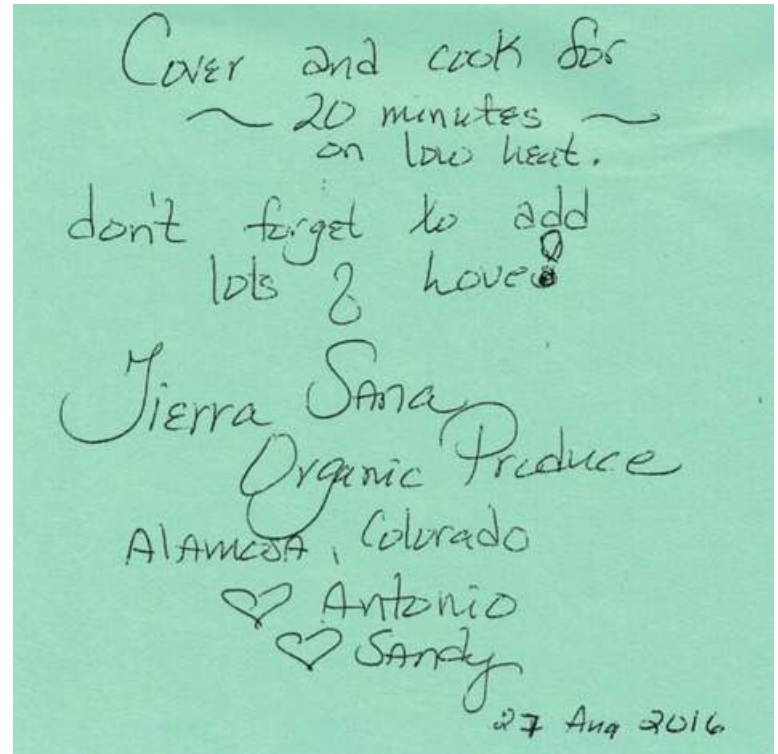 Cover and cook for
~ 20 minutes ~
on low heat.
don't forget to add
lots of Love!
Tierra Sana
Organic Produce
Alamosa, Colorado
♡ Antonio
♡ Sandy
27 Aug 2016